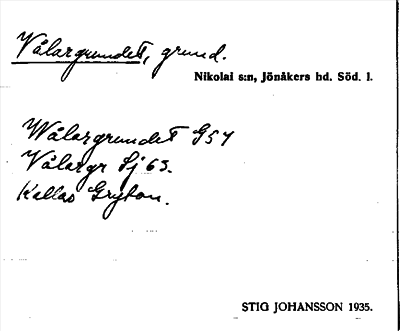 Vålargrundet, grund.
Nikolai s:n, Jönåkers hd. Söd. l.
Wålargrundet G54
Vålargr Sj 65.
Kallas Gryton.
STIG JOHANSSON 1935.